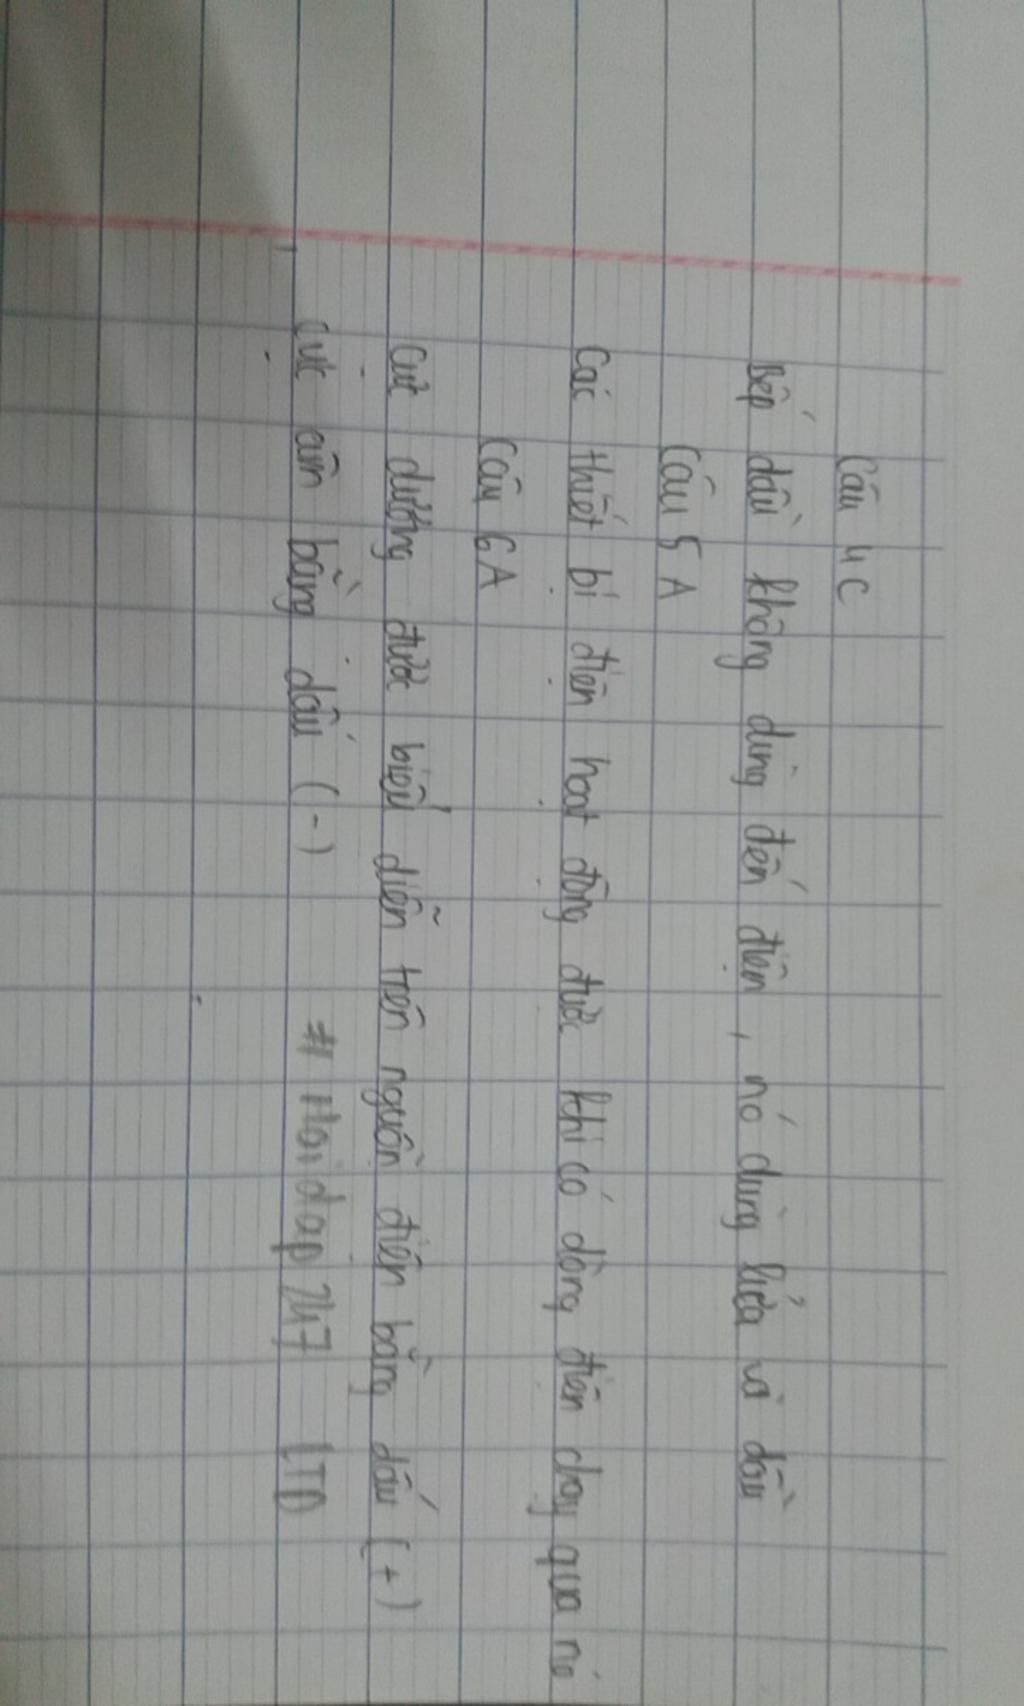 Câu 4 C
Bếp dầu không dùng đến điện, nó dùng lửa và dầu
Câu 5 A
Các thiết bị điện hoạt động được khi có dòng điện chạy qua nó
Câu 6 A
Cực dương được biểu diễn trên nguồn điện bằng dấu (+)
cực âm bằng dấu (-) # Hoidap247 LTD